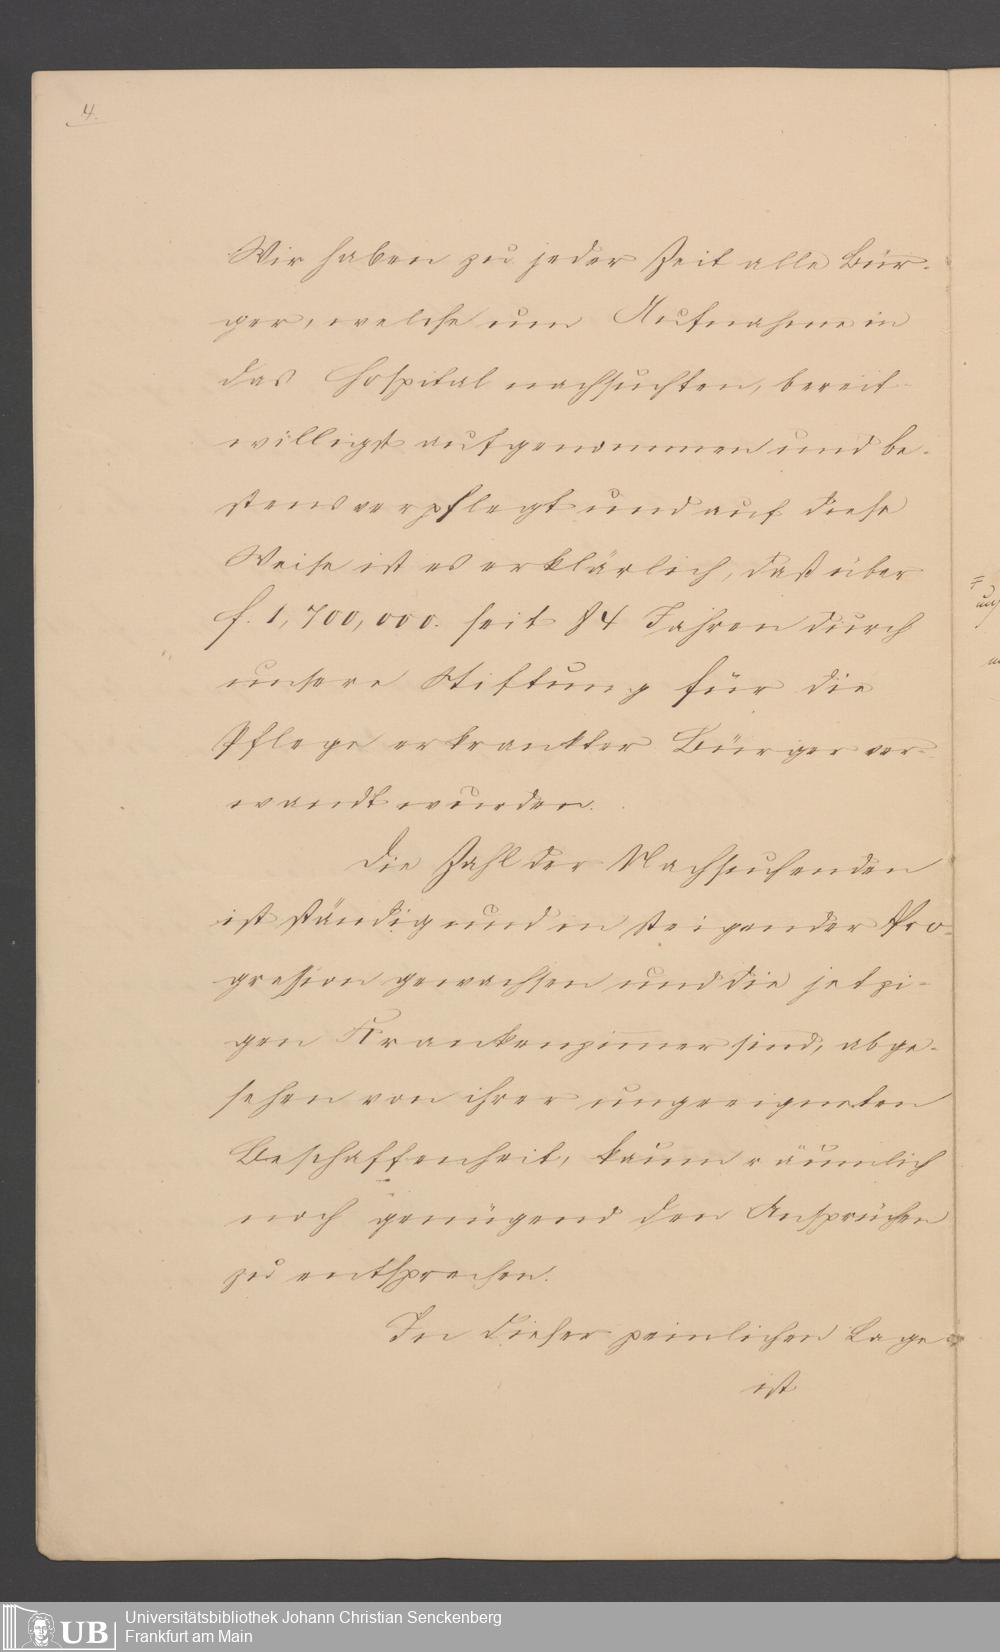 4.
Wir haben zu jeder Zeit alle Bür-
ger, welche um Aufnahme in
das Hospital nachsuchten, bereit-
willigst aufgenommen und be-
stens verpflegt und auf diese
Weise ist es erklärlich, daß über
f. 1,700,000. seit 84 Jahren durch
unsere Stiftung für die
Pflege erkrankter Bürger ver-
wandt wurden.
Die Zahl der Nachsuchenden
ist ständig und in steigender Pro-
gression gewachsen und die jetzi-
gen Krankenzim̅er sind, abge-
sehen von ihrer ungeeigneten
Beschaffenheit, kaum räumlich
noch genügend den Ansprüchen
zu entsprechen.
In dieser peinlichen Lage
ist
UB
Universitätsbibliothek Johann Christian Senckenberg
Frankfurt am Main